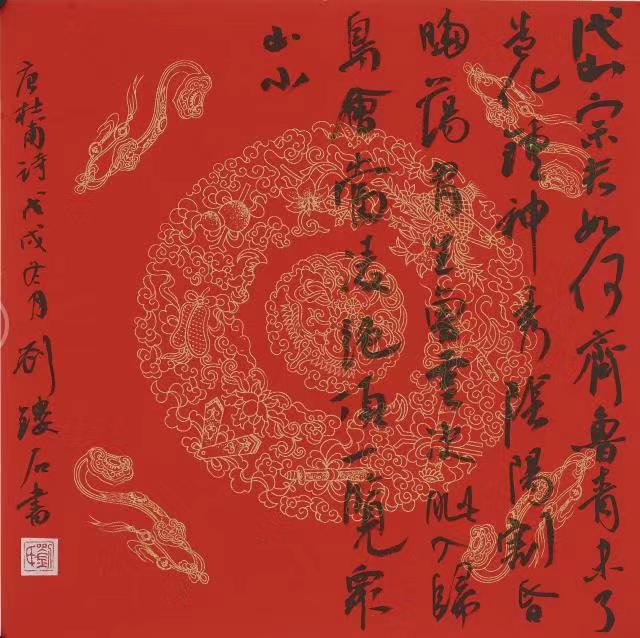 岱宗夫如何齊魯青未了
造化鍾神秀陰陽割昏
曉蕩胷生曾雲決眦入歸
鳥會當凌絶頂一覽眾
山小
唐杜甫詩戊戌冬月劉鏤石書